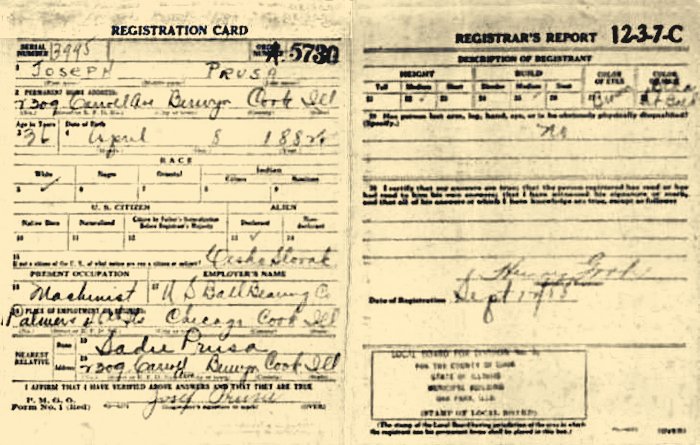 REGISTRATION CARD
SERIAL NUMBER 3995
ORDER NUMBER A 5730
1 JOSEPH PRUSA
2 PERMANENT HOME ADDRESS:
2309 Carroll Ave Berwyn Cook Ill
Age in Years Date of Birth
3 36 4 April 8
RACE
White Negro Oriental Indian
Citizen Noncitizen
5 6 7 8 9
U. S. CITIZEN ALIEN
Native Born Naturalized Citizen by Father's Naturalization Before Registrant's Majority Declarant Non-declarant
10 11 12 13 14
15
If not a citizen of the U. S., of what nation are you a citizen or subject?
PRESENT OCCUPATION EMPLOYER'S NAME
16 Machinist 17 U S Ball Bearing Co
18 PLACE OF EMPLOYMENT OR BUSINESS:
Palmer Chicago Cook Ill
NEAREST RELATIVE
Name 19 Sadie Prusa
Address 20 2309 Carroll Berwyn Cook Ill
I AFFIRM THAT I HAVE VERIFIED ABOVE ANSWERS AND THAT THEY ARE TRUE
P. M. G. O.
Form No. 1 (Red) (OVER)
Josef Prusa
REGISTRAR'S REPORT 12-3-7-C
DESCRIPTION OF REGISTRANT
HEIGHT BUILD COLOR OF EYES COLOR OF HAIR
Tall Medium Short Slender Medium Stout
21 22 23 24 25 26 27 28
Brown
29 Has person lost arm, leg, hand, eye, or is he obviously physically disqualified?
(Specify.)
No
30 I certify that my answers are true; that the person registered has read or has
had read to him his own answers; that I have witnessed his signature or mark,
and that all of his answers of which I have knowledge are true, except as follows:
Date of Registration Sept
LOCAL BOARD FOR DIVISION No.
FOR THE COUNTY OF COOK
STATE OF ILLINOIS
MUNICIPAL BUILDING
OAK PARK, ILL.
(STAMP OF LOCAL BOARD)
(The stamp of the Local Board having jurisdiction of the area in which
the registrant has his permanent home shall be placed in this box.)